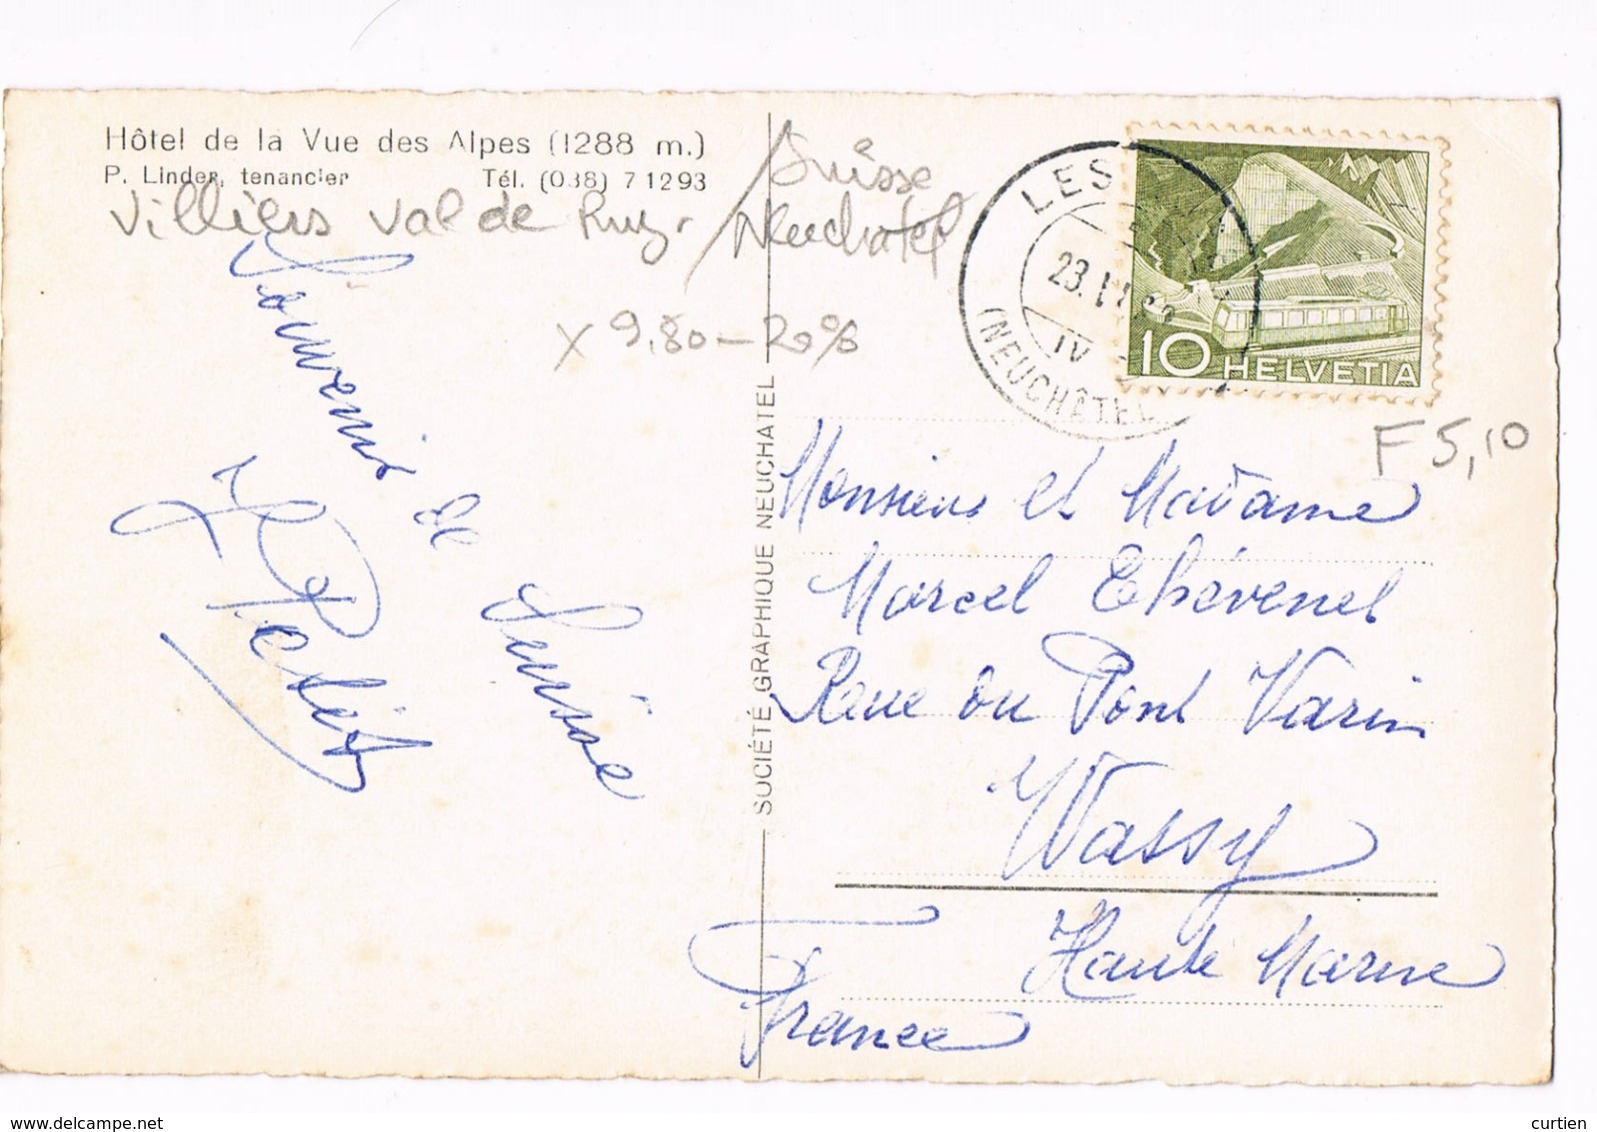 Hôtel de la Vue des Alpes (1288 m.)
P. Linder, tenancier Tél. (038) 7 12 93
Villiers Val de Ruz.
Suisse
Neuchatel
x 9,80 - 20%
Souvenir
de
Suisse
SOCIÉTÉ GRAPHIQUE NEUCHATEL
LES
23.
IV
(NEUCHÂTEL
10 HELVETIA
F 5,10
Monsieur et Madame
Marcel Thévenel
Rue du Pont Varin
Wassy
Haute Marne
France
delcampe.net
curtien